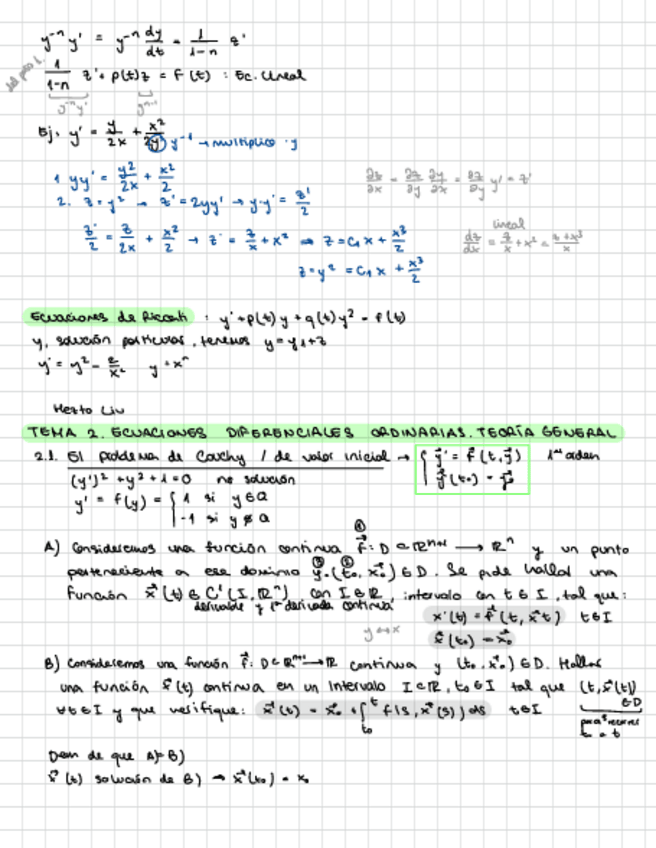 y⁻ⁿ y' = y⁻ⁿ dy/dt = 1/(1-n) z'
1/(1-n) z' + p(t)z = f(t) : Ec. lineal
y⁻ⁿy'
Ej. y' = y/2x + x²/2y y⁻¹ → multiplico · y
1. yy' = y²/2x + x²/2
∂z/∂x = ∂z/∂y ∂y/∂x = ∂z/∂y y' = z'
2. z = y² → z' = 2yy' → y·y' = z'/2
z'/2 = z/2x + x²/2 → z' = z/x + x² ⇒ z = C₁x + x³/2
lineal
dz/dx = z/x + x² = z+x³/x
z = y² = C₁x + x³/2
Ecuaciones de Riccati : y' + p(t)y + q(t)y² = f(t)
y, solución particular, tenemos y = y₁+z
y' = y² - 2/x² y = xⁿ
TEMA 2. ECUACIONES DIFERENCIALES ORDINARIAS. TEORÍA GENERAL
2.1. El problema de Cauchy / de valor inicial → { y' = f(t,y) 1er orden
(y')² + y² + 1 = 0 no solución
y' = f(y) = { 1 si y∈Q
-1 si y∉Q
A) Consideremos una función continua f: D ⊂ ℝⁿ⁺¹ → ℝⁿ y un punto
perteneciente a ese dominio (t₀, x₀) ∈ D. Se pide hallar una
función x(t) ∈ C¹(I, ℝⁿ) con I ⊂ ℝ, intervalo con t ∈ I, tal que:
derivable y 1ª derivada continua
x'(t) = f(t, x(t)) t∈I
y ↔ x
x(t₀) = x₀
B) Consideremos una función f: D ⊂ ℝⁿ⁺¹ → ℝ continua y (t₀, x₀) ∈ D. Hallar
una función x(t) continua en un intervalo I ⊂ ℝ, t₀ ∈ I tal que (t, x(t)) ∈ D
∀t∈I y que verifique: x(t) = x₀ + ∫ₜ₀ᵗ f(s, x(s)) ds t∈I
Dem de que A) B)
x(t) solución de B) → x(t₀) = x₀